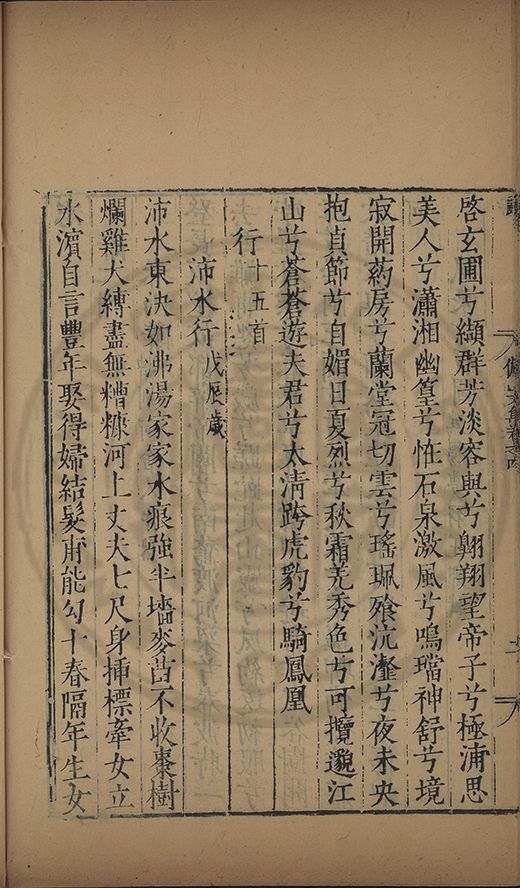 啓玄圃兮纈群芳淡容與兮翺翔望帝子兮極浦思
美人兮瀟湘幽篁兮恠石泉激風兮鳴璫神舒兮境
寂開葯房兮蘭堂冠切雲兮瑤珮飧沆瀣兮夜未央
抱貞節兮自媚日夏烈兮秋霜羌秀色兮可攬邈江
山兮蒼蒼遊夫君兮太清跨虎豹兮騎鳳凰
行十五首
沛水行戊辰歲
沛水東決如沸湯家家水痕強半墻麥苗不收棗樹
爛雞犬縛盡無糟糠河上丈夫七尺身揷標牽女立
水濵自言豐年娶得婦結髮甫能勾十春隔年生女